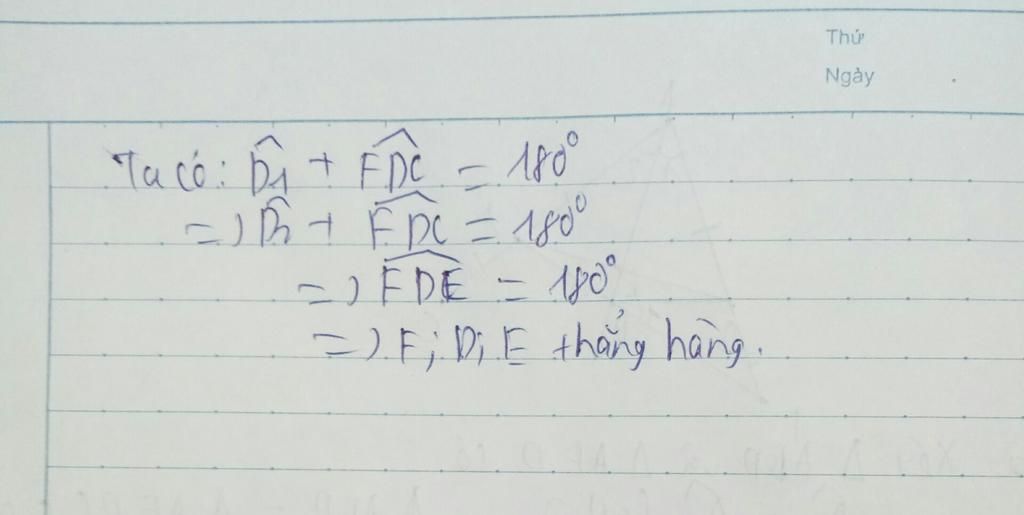 Thứ
Ngày
Ta có: D̂1 + FDC = 180°
=) D̂2 + FDC = 180°
=) FDE = 180°
=) F; D; E thẳng hàng.